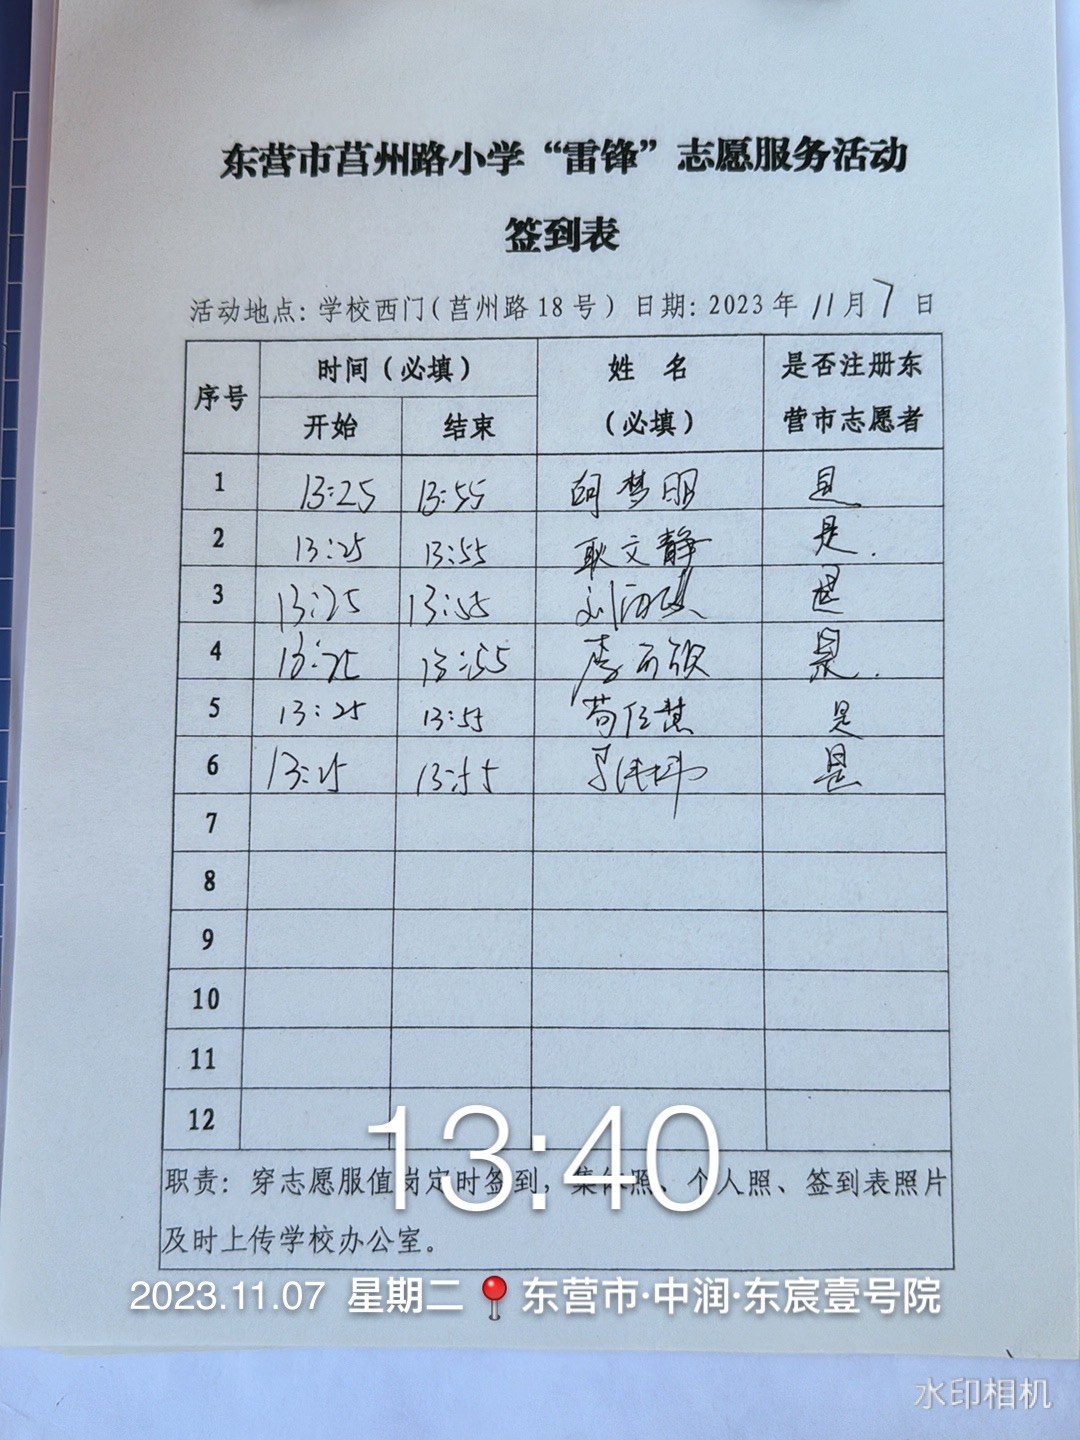 东营市莒州路小学“雷锋”志愿服务活动
签到表
活动地点: 学校西门(莒州路 18 号) 日期: 2023 年 11 月 7 日
序号 时间(必填) 姓 名 是否注册东
开始 结束 (必填) 营市志愿者
1 13:25 13:55 胡梦明 是
2 13:25 13:55 耿文静 是.
3 13:25 13:55 刘 是
4 13:25 13:55 李 欣 是.
5 13:25 13:55 苟 慧 是
6 13:25 13:55 是
7
8
9
10
11
12
13:40
职责: 穿志愿服值岗定时签到, 集体照、个人照、签到表照片
及时上传学校办公室。
2023.11.07 星期二 东营市·中润·东宸壹号院
水印相机